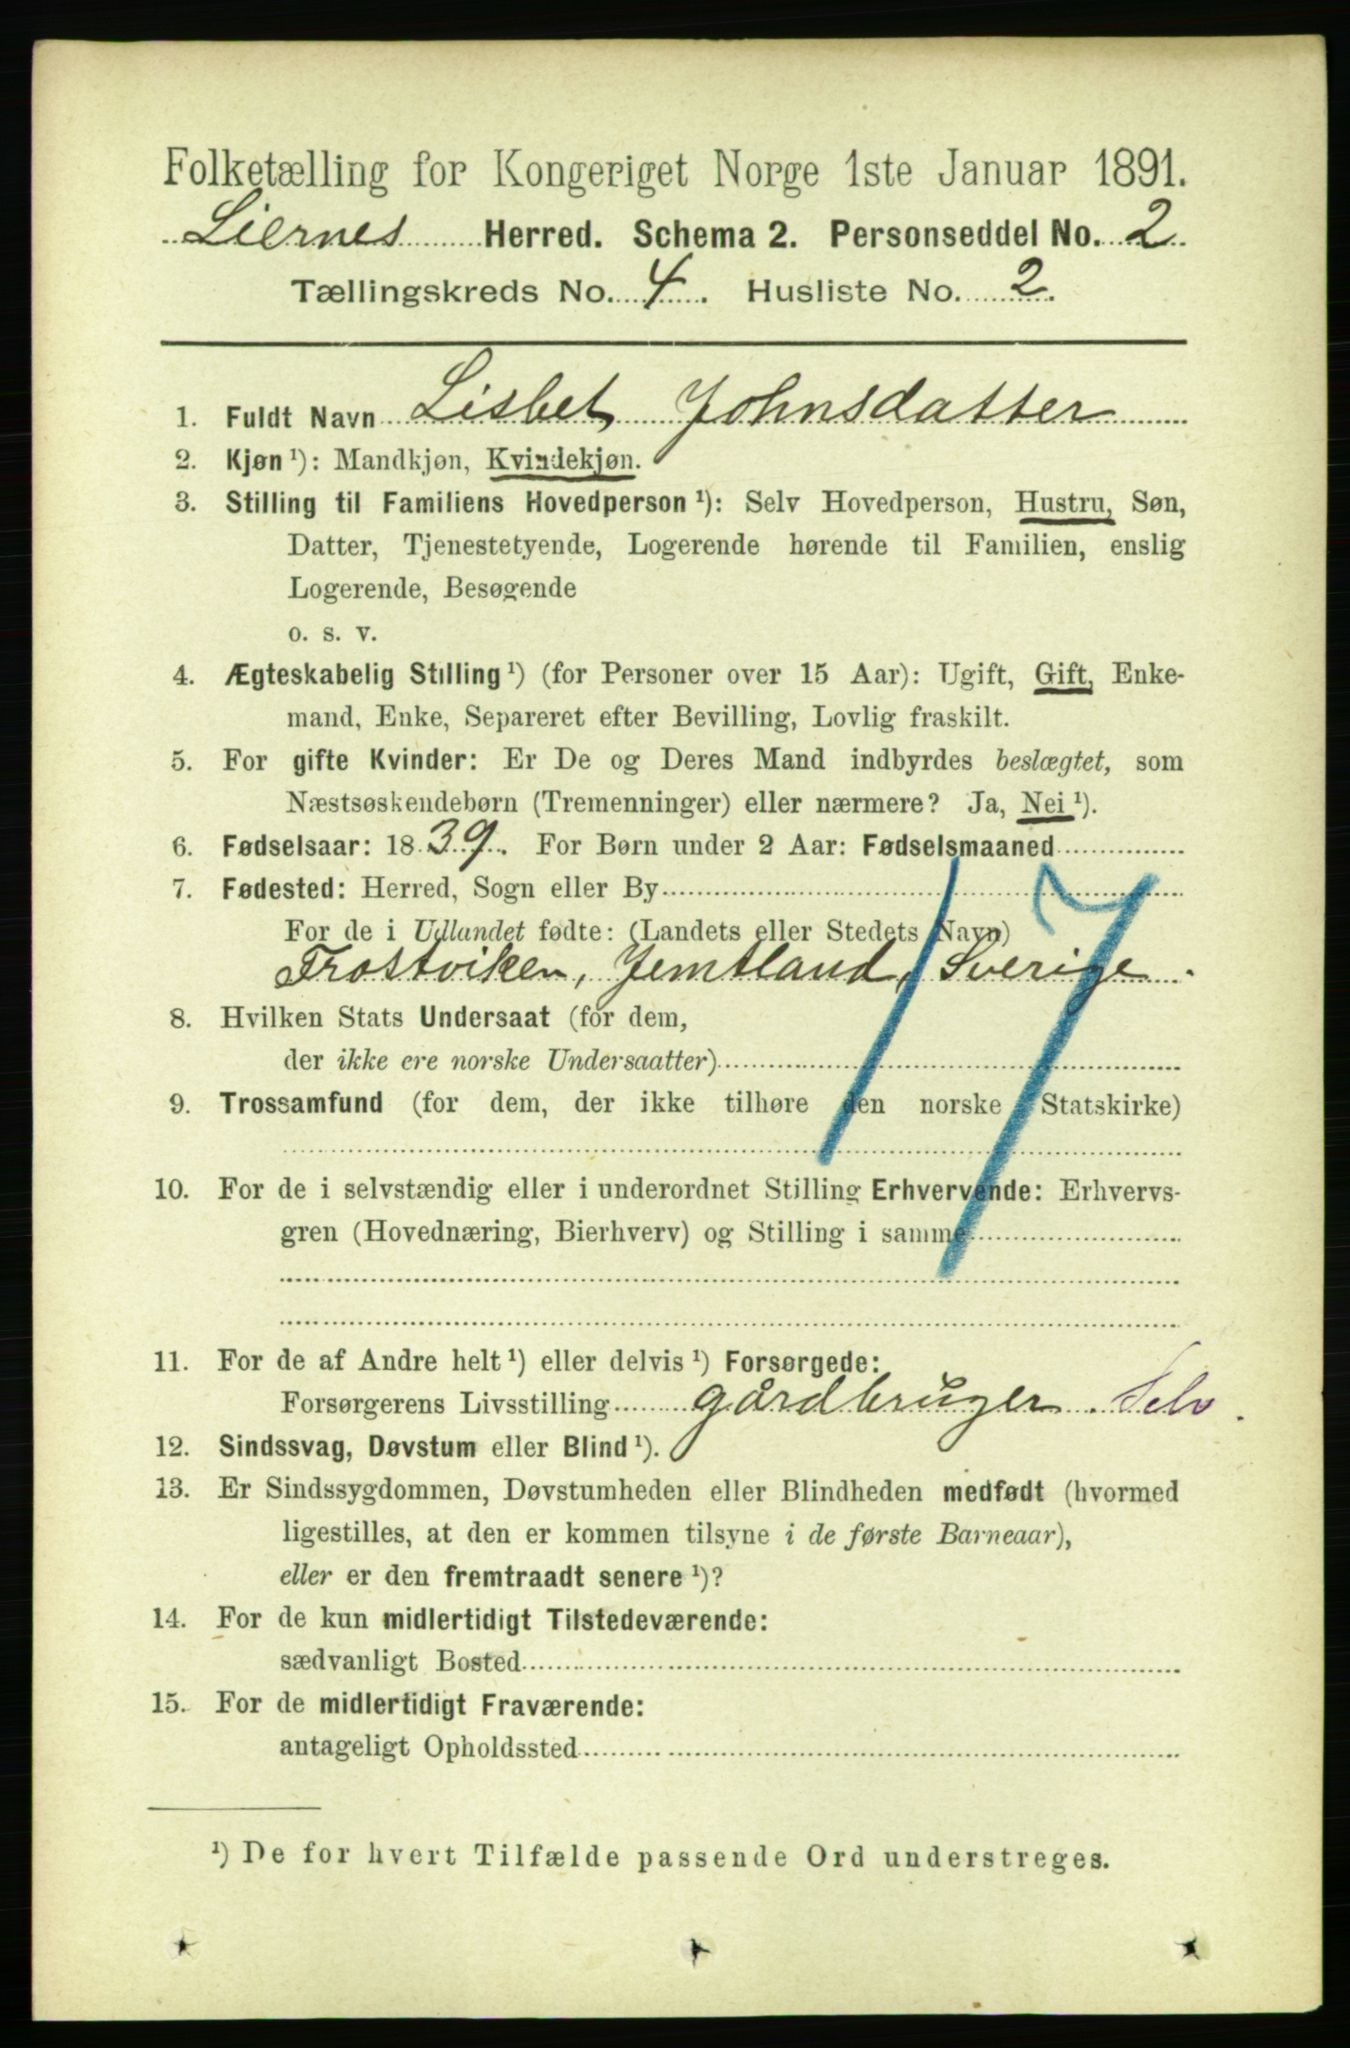 Folketælling for Kongeriget Norge 1ste Januar 1891.
Liernes Herred. Schema 2. Personseddel No. 2.
Tællingskreds No. 4. Husliste No. 2.
1. Fuldt Navn Lisbet Johnsdatter
2. Kjøn ¹): Mandkjøn, Kvindekjøn.
3. Stilling til Familiens Hovedperson ¹): Selv Hovedperson, Hustru, Søn,
Datter, Tjenestetyende, Logerende hørende til Familien, enslig
Logerende, Besøgende
o. s. v.
4. Ægteskabelig Stilling ¹) (for Personer over 15 Aar): Ugift, Gift, Enke-
mand, Enke, Separeret efter Bevilling, Lovlig fraskilt.
5. For gifte Kvinder: Er De og Deres Mand indbyrdes beslægtet, som
Næstsøskendebørn (Tremenninger) eller nærmere? Ja, Nei ¹).
6. Fødselsaar: 1839. For Børn under 2 Aar: Fødselsmaaned
7. Fødested: Herred, Sogn eller By
For de i Udlandet fødte: (Landets eller Stedets Navn)
Frostviken, Jemtland, Sverige.
17
8. Hvilken Stats Undersaat (for dem,
der ikke ere norske Undersaatter)
9. Trossamfund (for dem, der ikke tilhøre den norske Statskirke)
10. For de i selvstændig eller i underordnet Stilling Erhvervende: Erhvervs-
gren (Hovednæring, Bierhverv) og Stilling i samme
11. For de af Andre helt ¹) eller delvis ¹) Forsørgede:
Forsørgerens Livsstilling gårdbruger. Selv.
12. Sindssvag, Døvstum eller Blind ¹).
13. Er Sindssygdommen, Døvstumheden eller Blindheden medfødt (hvormed
ligestilles, at den er kommen tilsyne i de første Barneaar),
eller er den fremtraadt senere ¹)?
14. For de kun midlertidigt Tilstedeværende:
sædvanligt Bosted
15. For de midlertidigt Fraværende:
antageligt Opholdssted
¹) De for hvert Tilfælde passende Ord understreges.